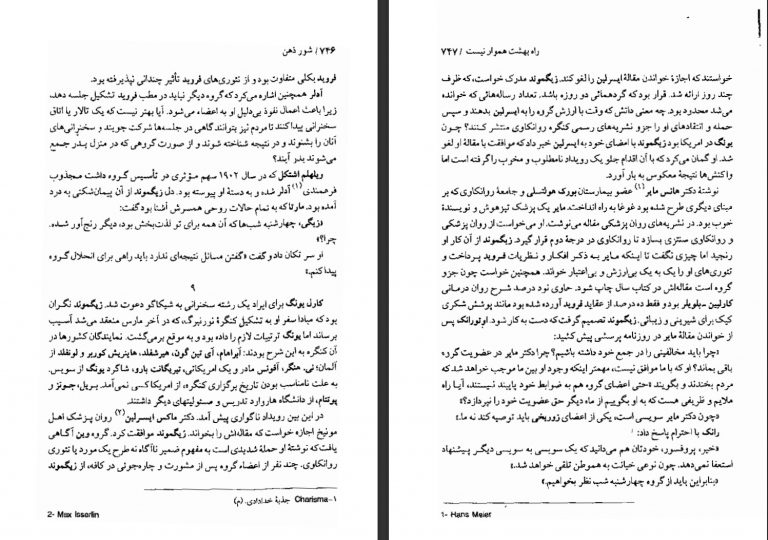 ۷۴۶ / شور ذهن
فروید بکلی متفاوت بود و از تئوری‌های فروید تأثیر چندانی نپذیرفته بود.
آدلر همچنین اشاره می‌کرد که گروه دیگر نباید در مطب فروید تشکیل جلسه دهد،
زیرا باعث اعمال نفوذ بی‌دلیل او به اعضاء می‌شود. آیا بهتر نیست که یک تالار یا اتاق
سخنرانی پیدا کنند تا مردم نیز بتوانند گاهی در جلسه‌ها شرکت جویند و سخنرانی‌های
آنان را بشنوند و در نتیجه شناخته شوند و از صورت گروهی که در منزل پدر جمع
می‌شوند بدر آیند؟
ویلهلم اشتکل که در سال ۱۹۰۲ سهم مؤثری در تأسیس گروه داشت مجذوب
فرهمندی (۱) آدلر شده و به دستهٔ او پیوسته بود. دل زیگموند از آن پیمان‌شکنی به درد
آمده بود. مارتا که به تمام حالات روحی همسرش آشنا بود گفت:
«زیگی، چهارشنبه شب‌ها که آن همه برای تو لذت‌بخش بود، دیگر رنج‌آور شده.
چرا؟»
او سر تکان داد و گفت «گفتن مسائل نتیجه‌ای ندارد باید راهی برای انحلال گروه
پیدا کنم.»
۹
کارل یونگ برای ایراد یک رشته سخنرانی به شیکاگو دعوت شد. زیگموند نگران
بود که مبادا سفر او به تشکیل کنگرهٔ نورنبرگ، که در آخر مارس منعقد می‌شد آسیب
برساند اما یونگ ترتیبات لازم را داده بود و به موقع برمی‌گشت. نمایندگان کشورها در
آن کنگره به این شرح بودند: آبراهام، آی تین گون، هیرشفلد، هاینریش کوربر و لونفلد از
آلمان؛ نی. هنگر، آفونس مادر و یک امریکائی، تیریگانت بارو، شاگرد یونگ از سویس.
به علت نامناسب بودن تاریخ برگزاری کنگره، از امریکا کسی نمی‌آمد. بریل، جونز و
پوتنام، از دانشگاه هاروارد تدریس و مسئولیتهای دیگر داشتند.
در این بین رویداد ناگواری پیش آمد. دکتر ماکس ایسرلین (۲) روان پزشک اهل
مونیخ اجازه خواست که مقاله‌اش را بخواند. زیگموند موافقت کرد. گروه وین آگاهی
یافت که نوشتهٔ او حملهٔ شدیدی است به مفهوم ضمیر ناآگاه نه طرح یک مورد یا تئوری
روانکاوی. چند نفر از اعضاء گروه پس از مشورت و چاره‌جوئی در کافه، از زیگموند
۱- Charisma جذبهٔ خدادادی. (م)
2- Max Isserlin
راه بهشت هموار نیست / ۷۴۷
خواستند که اجازهٔ خواندن مقالهٔ ایسرلین را لغو کند. زیگموند مدرک خواست، که ظرف
چند روز ارائه شد. قرار بود که گردهمائی دو روزه باشد. تعداد رساله‌هائی که خوانده
می‌شد محدود بود. چه معنی داشت که وقت با ارزش گروه را به ایسرلین بدهند و سپس
حمله و انتقادهای او را جزو نشریه‌های رسمی کنگره روانکاوی منتشر کنند؟ چون
یونگ در امریکا بود زیگموند با امضای خود به ایسرلین خبر داد که موافقت با مقالهٔ او لغو
شد. او گمان می‌کرد که با آن اقدام جلو یک رویداد نامطلوب و مخرب را گرفته است اما
واکنش‌ها نتیجهٔ معکوس به بار آورد.
نوشتهٔ دکتر هانس مایر (۱) عضو بیمارستان بورک هولتسلی و جامعهٔ روانکاوی که بر
مبنای دیگری طرح شده بود غوغا به راه انداخت. مایر یک پزشک تیزهوش و نویسندهٔ
خوب بود. در نشریه‌های روان پزشکی مقاله می‌نوشت. او می‌خواست از روان پزشکی
و روانکاوی سنتزی بسازد تا روانکاوی در درجهٔ دوم قرار گیرد. زیگموند از آن کار او
رنجید اما چیزی نگفت تا اینکه مایر به ذکر افکار و نظریات فروید پرداخت و
تئوری‌های او را یک به یک بی‌ارزش و بی‌اعتبار خواند. همچنین خواست چون جزو
گروه است مقاله‌اش در کتاب سال چاپ شود. حاوی نود درصد شرح روان درمانی
کارلین - بلویلر بود و فقط ده درصد از عقاید فروید آورده شده بود مانند پوشش شکری
کیک برای شیرینی و زیبائی. زیگموند تصمیم گرفت که دست به کار شود. اوتورانک پس
از خواندن مقالهٔ مایر در روزنامه پرسشی پیش کشید:
«چرا باید مخالفینی را در جمع خود داشته باشیم؟ چرا دکتر مایر در عضویت گروه
باقی بماند؟ او که با ما موافق نیست، مهمتر اینکه وجود او بین ما موجب خواهد شد که
مردم بخندند و بگویند «حتی اعضای گروه هم به ضوابط خود پایبند نیستند، آیا راه
ملایم و ظریفی هست که به او بگوییم از ماه دیگر حق عضویت خود را نپردازد؟»
«چون دکتر مایر سویسی است، یکی از اعضای زوریخی باید توصیه کند نه ما.»
رانک با احترام پاسخ داد:
«خیر، پروفسور، خودتان هم می‌دانید که یک سویسی به سویسی دیگر پیشنهاد
استعفا نمی‌دهد. چون نوعی خیانت به هموطن تلقی خواهد شد.»
«بنابراین باید از گروه چهارشنبه شب نظر بخواهیم.»
1- Hans Meier